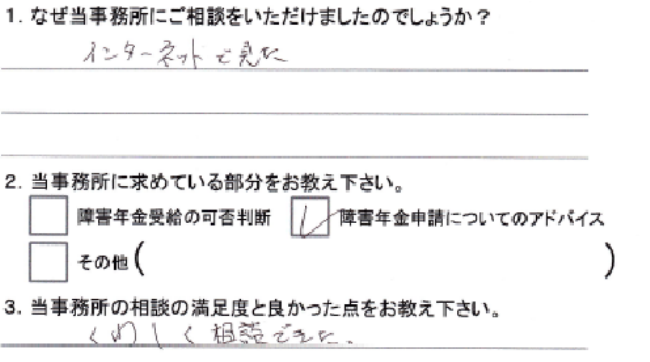 1. なぜ当事務所にご相談をいただけましたのでしょうか？
インターネットで見た
2. 当事務所に求めている部分をお教え下さい。
障害年金受給の可否判断 障害年金申請についてのアドバイス
その他（ ）
3. 当事務所の相談の満足度と良かった点をお教え下さい。
くわしく相談できた。